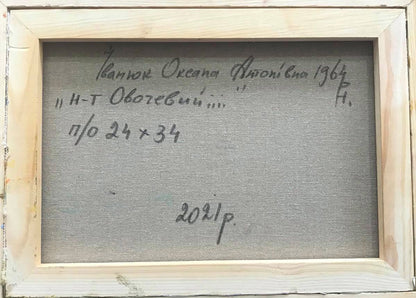 Іванюк Оксана Антонівна 1964
р.н.
„Н-т Овочевий...."
п/о 24 х 34
2021 р.